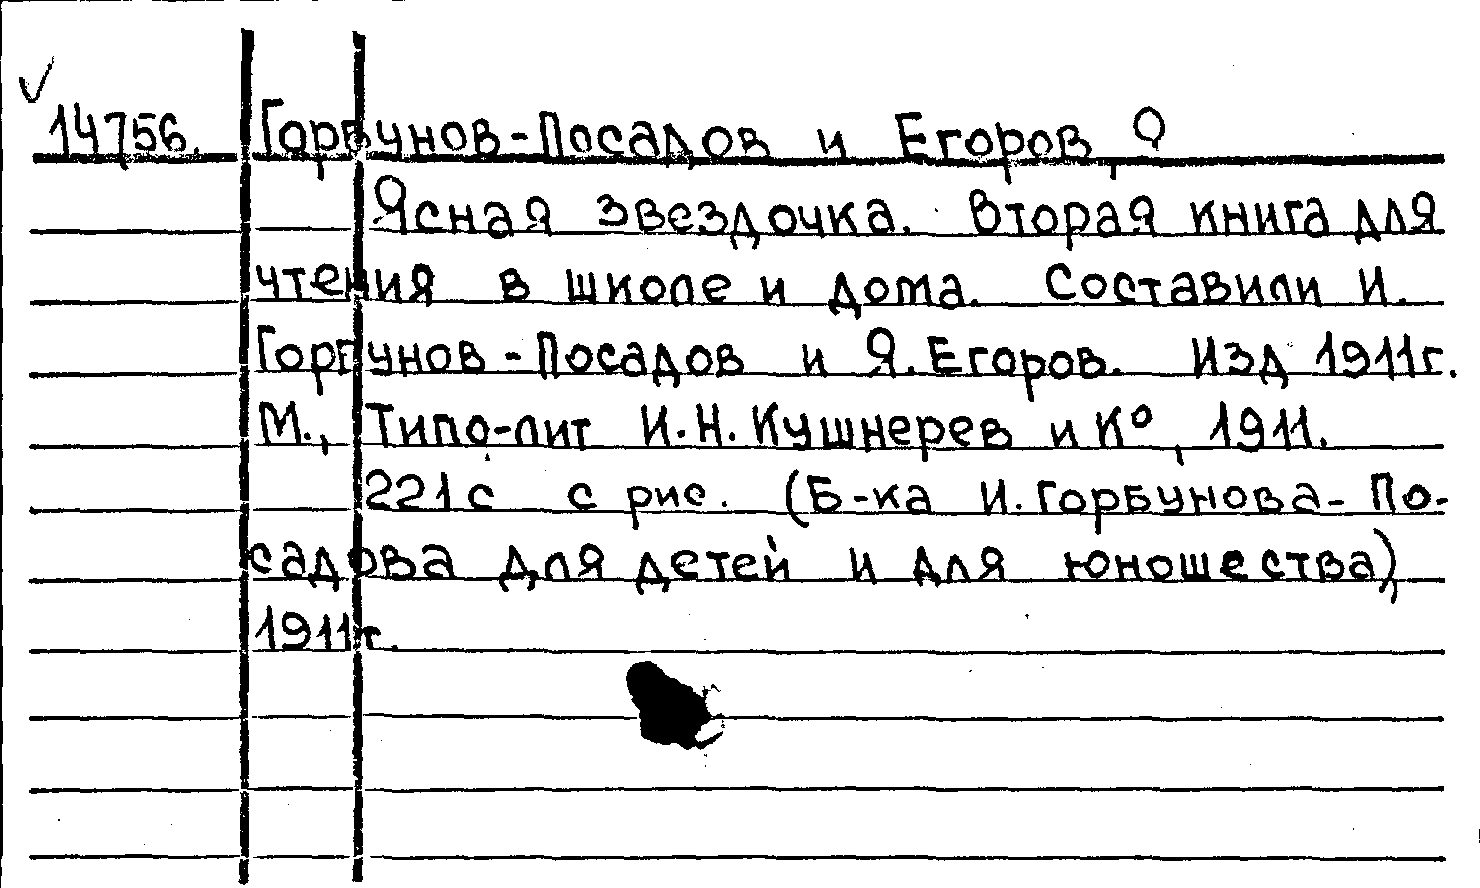 14756. Горбунов-Посадов и Егоров, Я
Ясная звездочка. Вторая книга для
чтения в школе и дома. Составили И.
Горбунов-Посадов и Я. Егоров. Изд 1911г.
М., Типо-лит И.Н.Кушнерев и Кº, 1911.
221с с рис. (Б-ка И.Горбунова-По-
садова для детей и для юношества),
1911г.